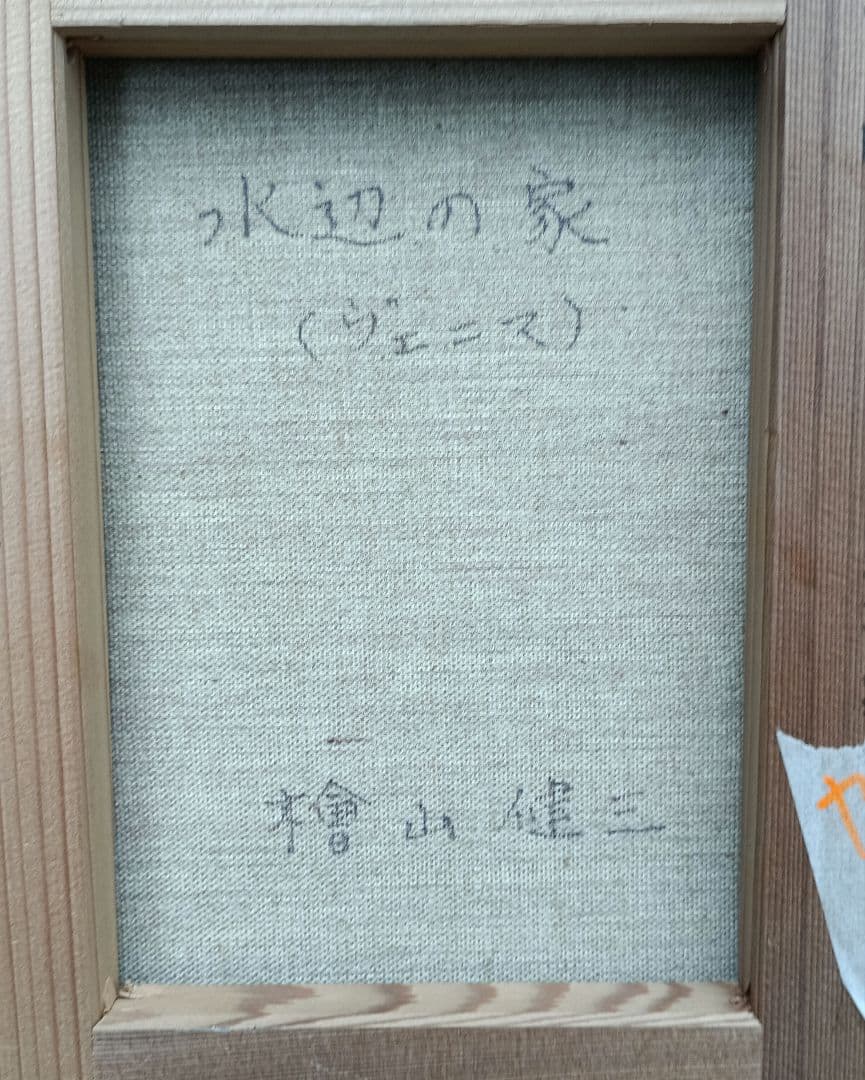 水辺の家
(ヴェニス)
檜山健三